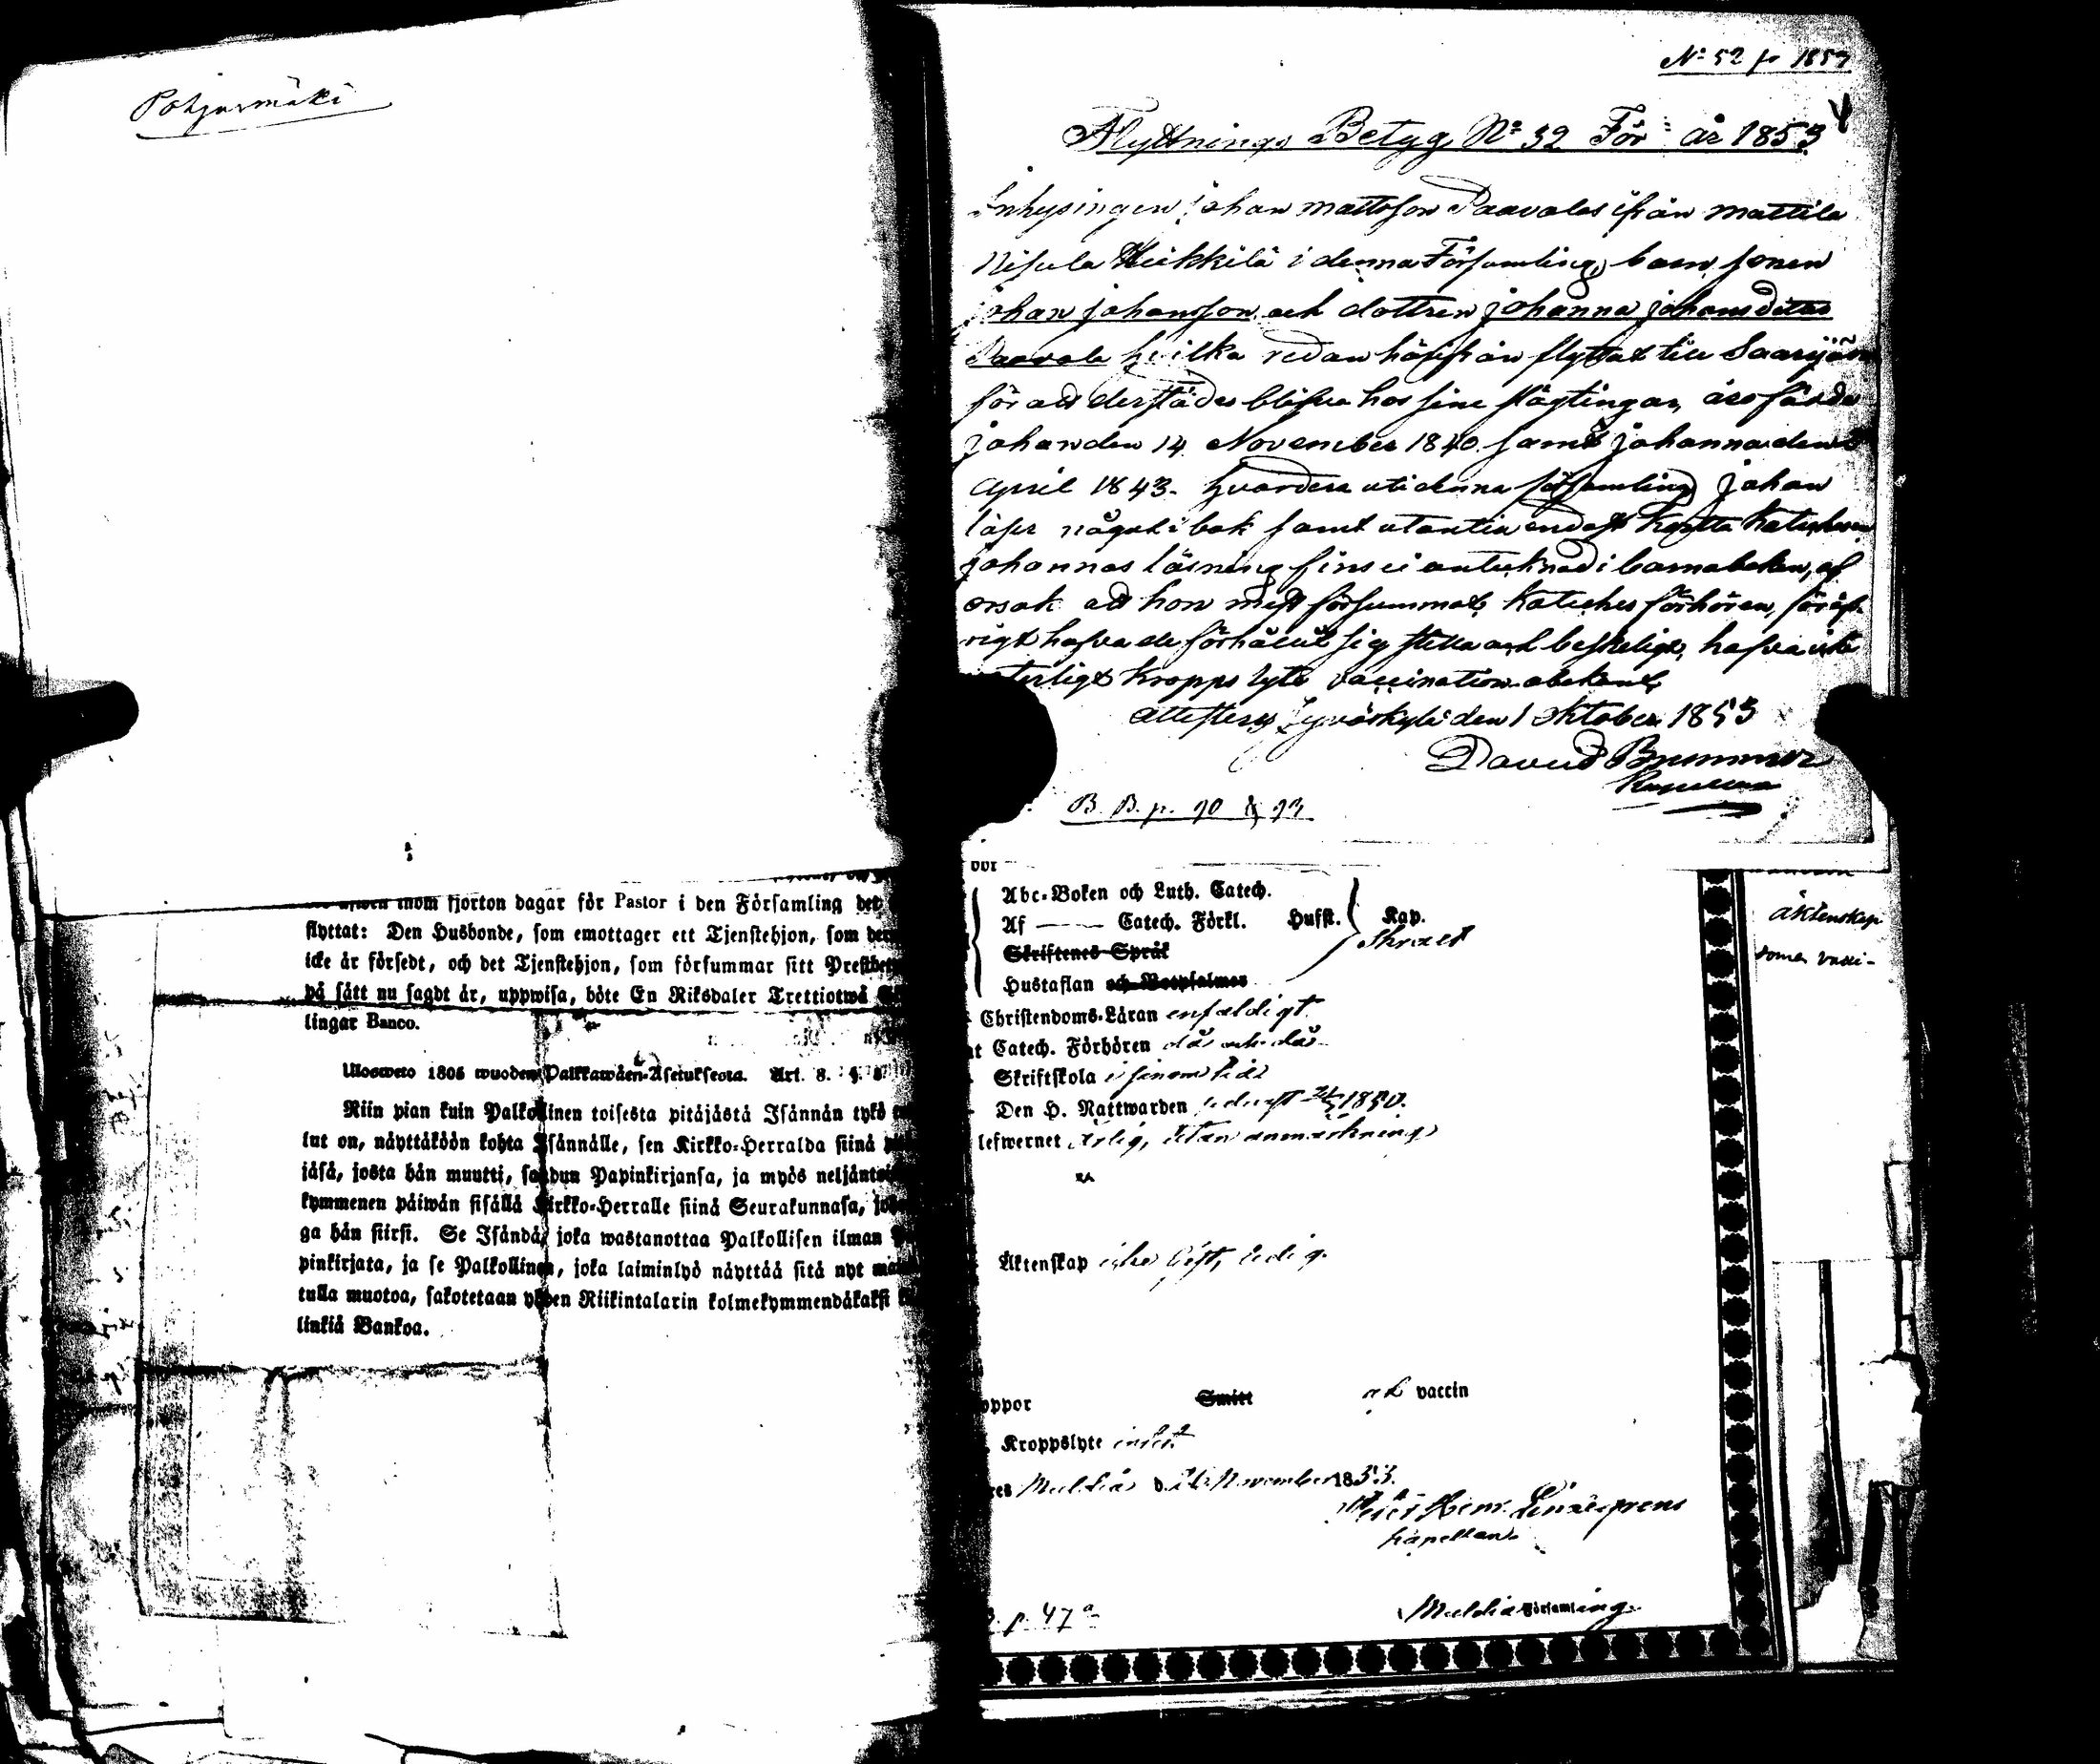 Pohjasmäki
inom fjorton dagar för Pastor i den Församling det
flyttat: Den Husbonde, som emottager ett Tjenstehjon, som
icke är försedt, och det Tjenstehjon, som försummar sitt
på sätt nu sagdt är, uppwisa, böte En Riksdaler Trettiotwå
lingar Banco.
Ulosweto 1805 wuoden Palkkawäen-Asetuksesta. Art. 8.
Niin pian kuin Palkollinen toisesta pitäjästä Isännän tykö
lut on, näyttäköön kohta Isännälle, sen Kirkko-Herralda siinä
jäsä, josta hän muutti, saadun Papinkirjansa, ja myös
kymmenen päiwän sisällä Kirkko-Herralle siinä Seurakunnasa,
ga hän siirsi. Se Isändä, joka wastanottaa Palkollisen ilman
pinkirjata, ja se Palkollinen, joka laiminlyö näyttää sitä nyt
tulla muotoa, sakotetaan yhden Riikintalarin kolmekymmendäkaksi
linkiä Bankoa.
No 52 för 1853
Flyttnings Betyg No 52 För år 1853
Inhysingen Johan Mattsson Paavolas ifrån Mattila
Nisula Heikkilä i denna Församling, barn sonen
Johan Johansson och dottren Johanna Johansdotter
Paavola hvilka redan härifrån flyttat till Saarijärvi
för att derstädes blifva hos sine slägtingar, äro födde
Johan den 14 November 1840 samt Johanna den
April 1843. hvardera uti denna församling Johan
läser något i bok samt utantill endast korta Katechesen
Johannas läsning fins ei antecknad i barnaboken, af
orsak att hon mest försummat Kateches förhören, för öf-
rigt hafva de förhållit sig stilla och beskedligt, hafva icke
kropps lyte vaccination obekant
Attesterar Jyväskylä den 1 Oktober 1853
David Brummer
B. B. p. 90 & 93
Abc-Boken och Luth. Catech.
Af Catech. Förkl. Husst. Kap.
Skriftenes Språk
Hustaflan och Botpsalmer
Christendoms-Läran enfaldigt
Catech. Förhören då och då
Skriftskola i sinom tid
Den H. Nattwarden 1850.
lefwernet ärlig, utan anmärkning
Äktenskap icke gift, ledig.
Smitt vaccin
Kroppslyte intet
Multia d. November 1853.
Henr.
kapellan.
p. 47
Multia Församling
äktenskap